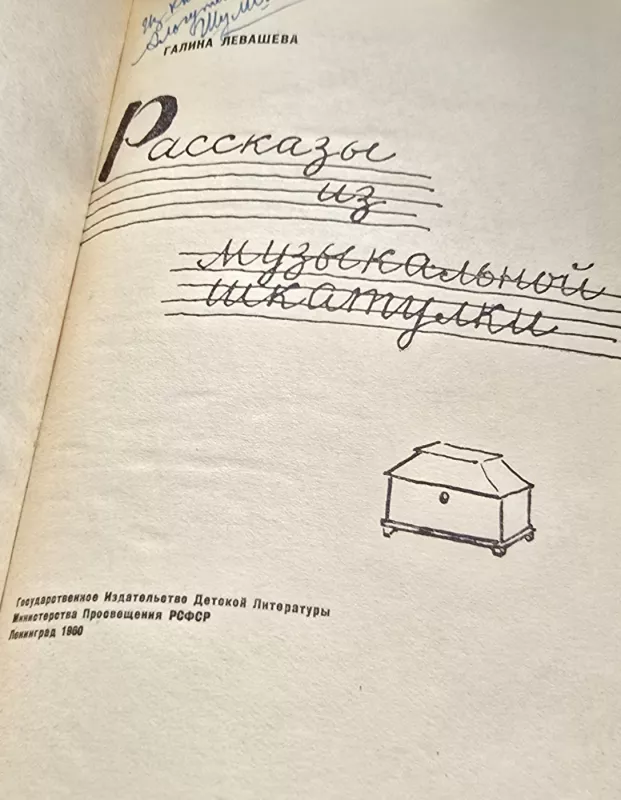 Из
ГАЛИНА ЛЕВАШЕВА
Рассказы
из
музыкальной
шкатулки
Государственное Издательство Детской Литературы
Министерства Просвещения РСФСР
Ленинград 1960